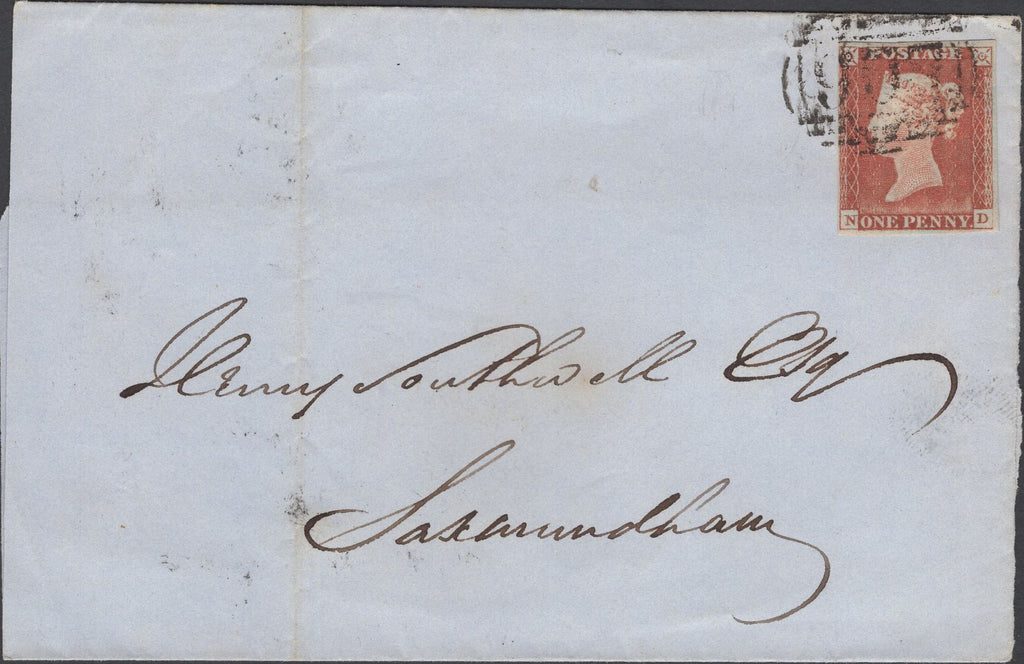 POSTAGE
N ONE PENNY D
Henry Southwell Esq
Saxmundham